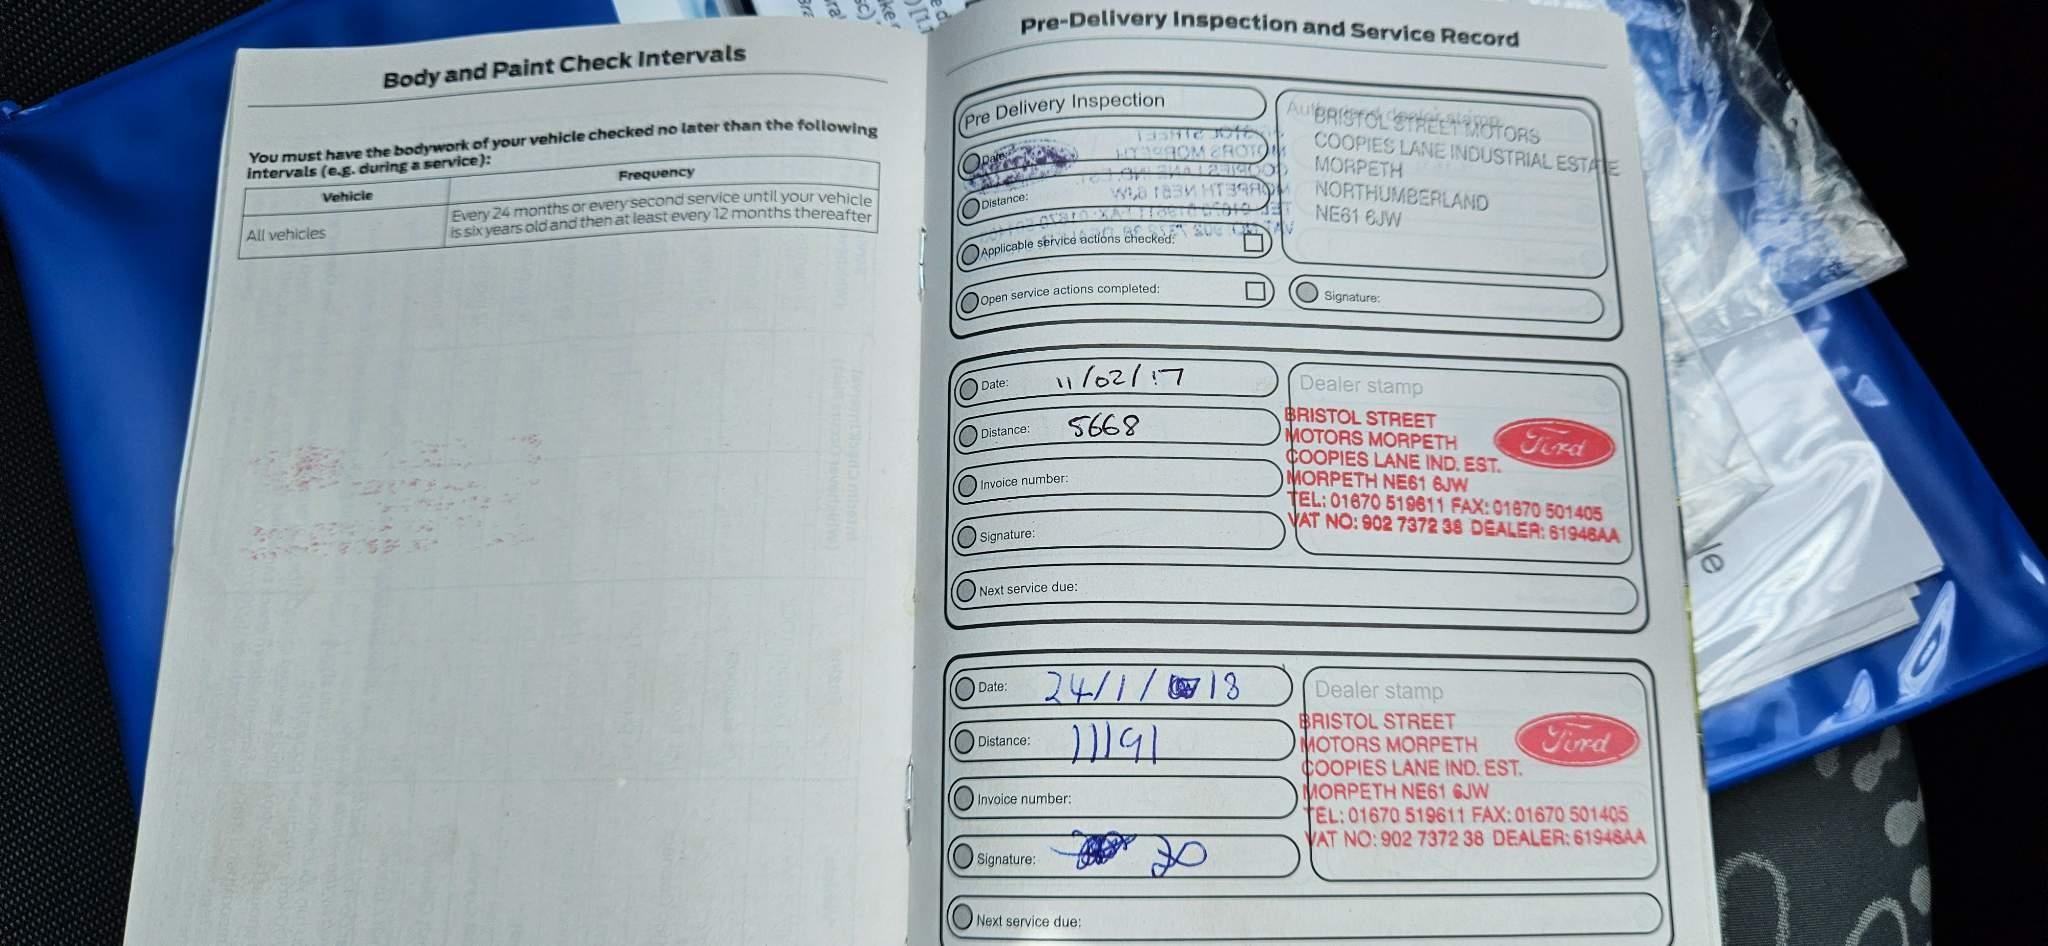 Body and Paint Check Intervals
You must have the bodywork of your vehicle checked no later than the following
intervals (e.g. during a service):
Vehicle Frequency
All vehicles
Every 24 months or every second service until your vehicle
is six years old and then at least every 12 months thereafter
Pre-Delivery Inspection and Service Record
Pre Delivery Inspection
Date:
Distance:
Applicable service actions checked:
Open service actions completed:
Authorised dealer stamp
BRISTOL STREET MOTORS
COOPIES LANE INDUSTRIAL ESTATE
MORPETH
NORTHUMBERLAND
NE61 6JW
Signature:
Date: 11/02/17
Distance: 5668
Invoice number:
Signature:
Next service due:
Dealer stamp
BRISTOL STREET
MOTORS MORPETH
COOPIES LANE IND. EST.
MORPETH NE61 6JW
TEL: 01670 519611 FAX: 01670 501405
VAT NO: 902 7372 38 DEALER: 61946AA
Ford
Date: 24/1/18
Distance: 11191
Invoice number:
Signature:
Next service due:
Dealer stamp
BRISTOL STREET
MOTORS MORPETH
COOPIES LANE IND. EST.
MORPETH NE61 6JW
TEL: 01670 519611 FAX: 01670 501405
VAT NO: 902 7372 38 DEALER: 61946AA
Ford